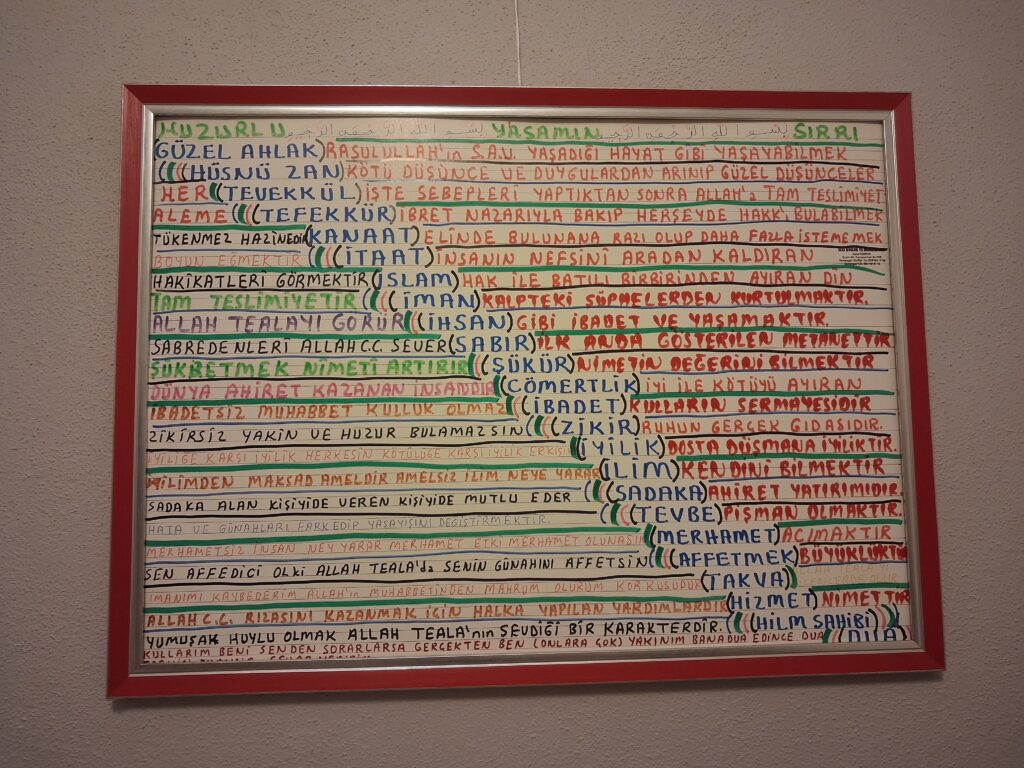 HUZURLU بسم الله الرحمن الرحيم YAŞAMIN بسم الله الرحمن الرحيم SIRRI
GÜZEL AHLAK) RASULULLAH'ın S.A.V. YAŞADIĞI HAYAT GİBİ YAŞAYABİLMEK
(((HÜSNÜ ZAN) KÖTÜ DÜŞÜNCE VE DUYGULARDAN ARINIP GÜZEL DÜŞÜNCELER
HER (TEVEKKÜL) İŞTE SEBEPLERİ YAPTIKTAN SONRA ALLAH'a TAM TESLİMİYET
ALEME (((TEFEKKÜR) İBRET NAZARIYLA BAKIP HERŞEYDE HAKK'ı BULABİLMEK
TÜKENMEZ HAZİNEDİR (KANAAT) ELİNDE BULUNANA RAZI OLUP DAHA FAZLA İSTEMEMEK
BOYUN EĞMEKTİR (((İTAAT) İNSANIN NEFSİNİ ARADAN KALDIRAN
HAKİKATLERİ GÖRMEKTİR (İSLAM) HAK İLE BATILI BİRBİRİNDEN AYIRAN DİN
TAM TESLİMİYETİR (((İMAN) KALPTEKİ ŞÜPHELERDEN KURTULMAKTIR.
ALLAH TEALAYI GÖRÜR ((İHSAN) GİBİ İBADET VE YAŞAMAKTIR.
SABREDENLERİ ALLAH C.C. SEVER (SABIR) İLK ANDA GÖSTERİLEN METANETTİR
ŞÜKRETMEK NİMETİ ARTIRIR (((ŞÜKÜR) NİMETİN DEĞERİNİ BİLMEKTİR
DÜNYA AHİRET KAZANAN İNSANDIR (CÖMERTLİK) İYİ İLE KÖTÜYÜ AYIRAN
İBADETSİZ MUHABBET KULLUK OLMAZ (((İBADET) KULLARIN SERMAYESİDİR
ZİKİRSİZ YAKİN VE HUZUR BULAMAZSIN (((ZİKİR) RUHUN GERÇEK GIDASIDIR.
İYİLİĞE KARŞI İYİLİK HERKESİN KÖTÜLÜĞE KARŞI İYİLİK ERKİŞİN (İYİLİK) DOSTA DÜŞMANA İYİLİKTİR.
İLİMDEN MAKSAD AMELDİR AMELSİZ İLİM NEYE YARAR (İLİM) KENDİNİ BİLMEKTİR
SADAKA ALAN KİŞİYİDE VEREN KİŞİYİDE MUTLU EDER (((SADAKA) AHİRET YATIRIMIDIR.
HATA VE GÜNAHLARI FARKEDİP YAŞAYIŞINI DEĞİŞTİRMEKTİR. (((TEVBE) PİŞMAN OLMAKTIR.
MERHAMETSİZ İNSAN NEY YARAR MERHAMET ETKİ MERHAMET OLUNASIN (MERHAMET) ACIMAKTIR
SEN AFFEDİCİ OLKİ ALLAH TEALA'da SENİN GÜNAHINI AFFETSİN ((AFFETMEK) BÜYÜKLÜKTÜR
İMANIMI KAYBEDERİM ALLAH'ın MUHABBETİNDEN MAHRUM OLURUM KORKUSUDUR (TAKVA)
ALLAH C.C. RIZASINI KAZANMAK İÇİN HALKA YAPILAN YARDIMLARDIR (HİZMET) NİMETTİR
YUMUŞAK HUYLU OLMAK ALLAH TEALA'nın SEVDİĞİ BİR KARAKTERDİR. (((HİLM SAHİBİ)
KULLARIM BENİ SENDEN SORARLARSA GERÇEKTEN BEN (ONLARA ÇOK) YAKINIM BANA DUA EDİNCE DUA ((DUA)